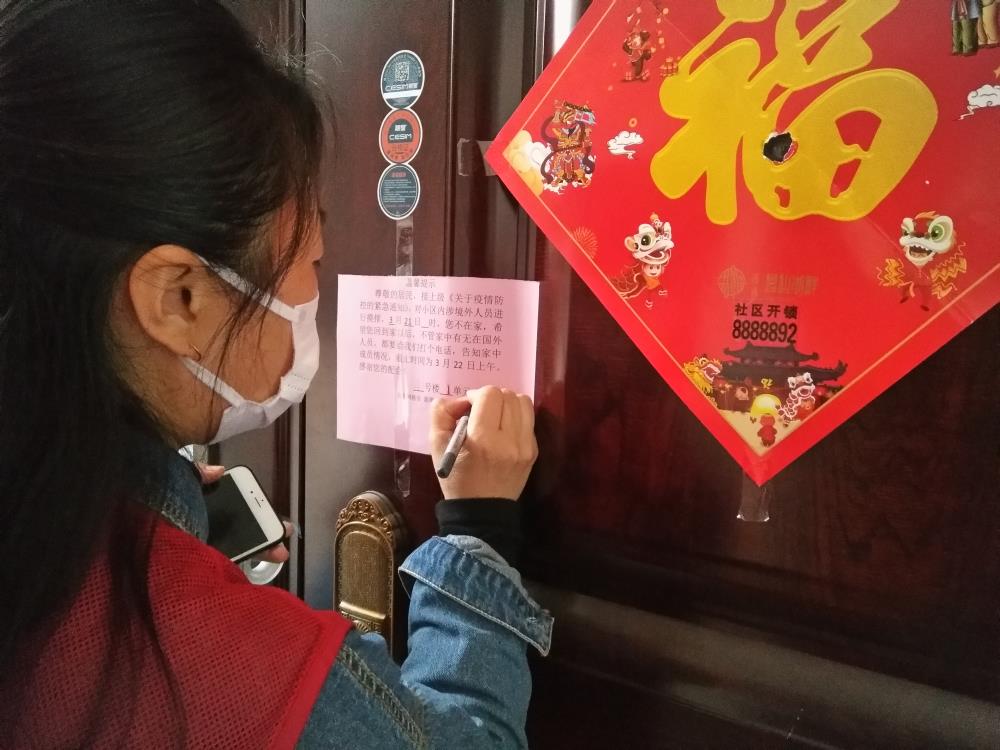 福
CESIM
CESIM
温馨提示
尊敬的居民，按上级《关于疫情防
控的紧急通知》，对小区内涉境外人员进
行摸排，3月21日_时，您不在家，希
望您回到家以后，不管家中有无在国外
人员，都要给我们打个电话，告知家中
成员情况，截止时间为3月22日上午。
感谢您的配合
号楼1单元
社区开锁
8888892